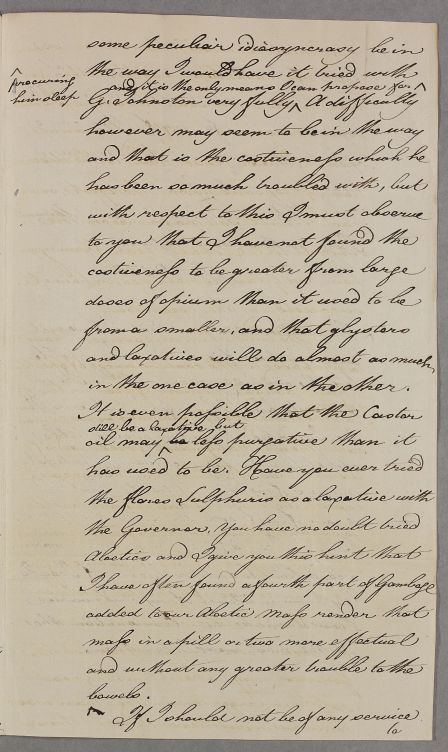 some peculiar idiosyncrasy be in
the way I would have it tried with
and it is the only means I can propose for ^
^ procuring
him sleep
G. Johnston very fully ^ A difficulty
however may seem to be in the way
and that is the costiveness which he
has been so much troubled with, but
with respect to this I must observe
to you that I have not found the
costiveness to be greater from large
doses of opium than it used to be
from a smaller, and that glysters
and laxatives will do almost as much
in the one case as in the other.
It is even possible that the Castor
still be a laxative but
oil may be less purgative than it
has used to be. Have you ever tried
the flores Sulphuris as a laxative with
the Governor, You have no doubt tried
Aloetics and I give you this hint that
I have often found a fourth part of Gamboge
added to our Aloetic mass render that
mass in a pill or two more effectual
and without any greater trouble to the
bowels.
If I should not be of any service
to